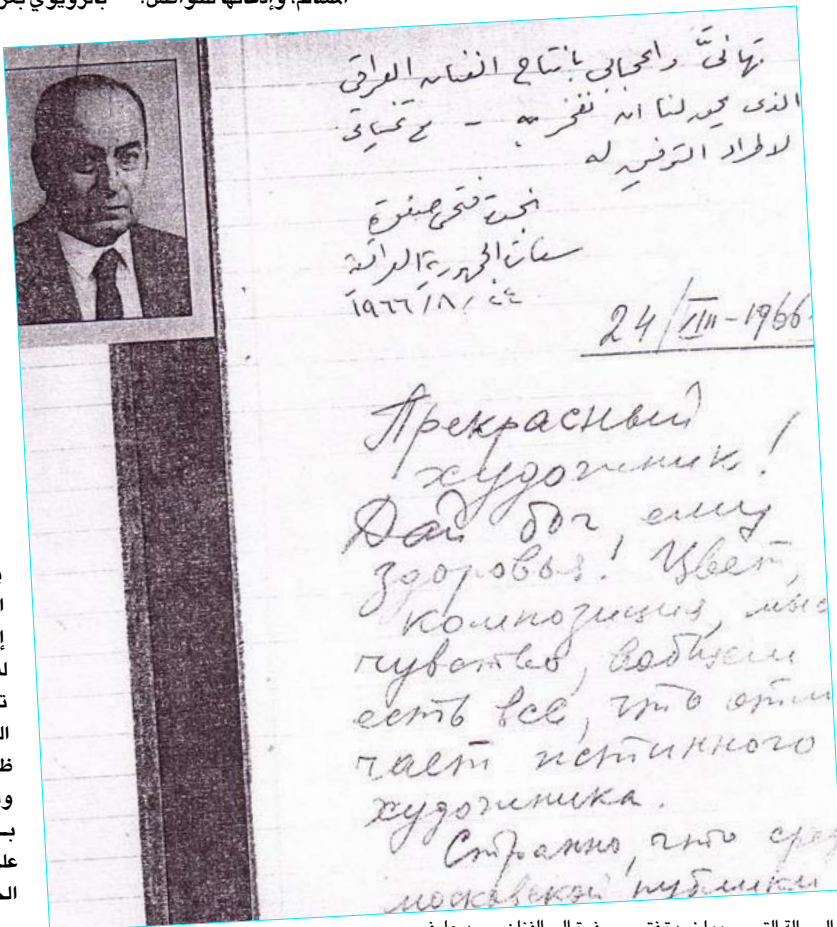 بالترويوي بعر
المسالم، وإدمانها للتواصل.
تهانيّ واعجابي بانتاج الفنان العراقي
الذي يحق لنا ان نفخر به - مع تحياتي
لاطراد التوفيق له
نجدة فتحي صفوة
سفارة الجمهورية العراقية
١٩٦٦/٨/٢٤
24/VIII-1966
Прекрасный
художник!
Дай бог ему
здоровья! Цвет,
композиция,
чувство, вобщем
есть все, что отли
чает истинного
художника.
Странно, что сред
московской публики